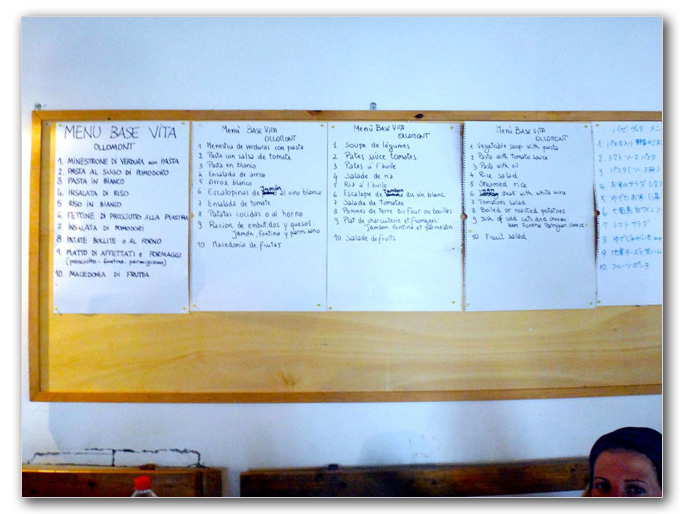 MENÙ BASE VITA
OLLOMONT
1. MINESTRONE DI VERDURA con PASTA
2. PASTA AL SUGO DI POMODORO
3. PASTA IN BIANCO
4. INSALATA DI RISO
5. RISO IN BIANCO
6. FETTINE DI PROSCIUTTO ALLA PIASTRA
7. INSALATA DI POMODORI
8. PATATE BOLLITE O AL FORNO
9. PIATTO DI AFFETTATI E FORMAGGI
(prosciutto - fontina, parmigiano)
10. MACEDONIA DI FRUTTA
Menù BASE VITA
OLLOMONT
1 Menestra de verduras con pasta
2 Pasta con salsa de tomate
3 Pasta en blanco
4 Ensalada de arroz
5 Arroz blanco
6 Escalopinas de Jamón al vino blanco
7 Ensalada de tomate
8 Patatas cocidas o al horno
9 Racion de embutidos y quesos:
Jamón, fontina y parmisano
10 Macedonia de frutas
Menù BASE VITA
OLLOMONT
1 Soupe de légumes
2 Pates sauce tomates
3 Pates à l'huile
4 Salade de riz
5 Riz à l'huile
6 Escalope de Jambon au vin blanc
7 Salade de Tomates
8 Pommes de Terre au four ou bouilles
9 Plat de charcuterie et fromages
Jambon fontina et parmesan
10 Salade de fruits
Menù BASE VITA
OLLOMONT
1 Vegetable soup with pasta
2 Pasta with tomato sauce
3 Pasta with oil
4 Rice salad
5 Steamed rice
6 with white wine
7 Tomatoes salad
8 Boiled or roasted potatoes
9 Dish of cold cuts and cheese
ham Fontina Parmigian cheese
10 Fruit salad
メニ
1.
2. トマトソースパスタ
3.
4. お米のサラダ
5. ゆでたお米
6.
7. トマト サラダ
8.
9.
10. フルーツポンチ